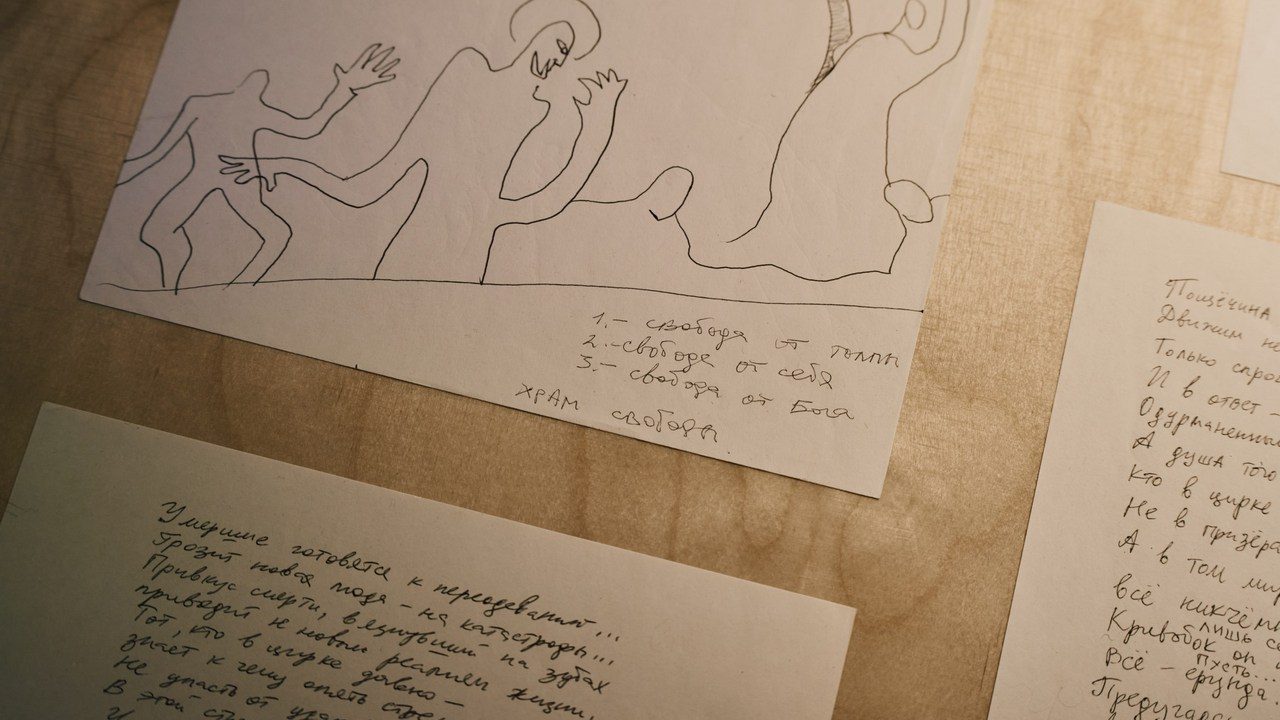 1.- свобода от толпы
2.- свобода от себя
3.- свобода от Бога
ХРАМ свободы
Умершие готовятся к переодеванию...
Грозит новая мода - на катастрофы...
Привкус смерти, вязнувший на зубах
приводит к новым реалиям жизни.
Тот, кто в цирке давно -
знает к чему опять
не упасть от
В этой
Пощёчина
Движим не
Только
И в ответ -
Одурманенный
А душа того
Кто в цирке
Не в
А в том
всё
лишь
Кривобок он
Пусть...
Всё - ерунда